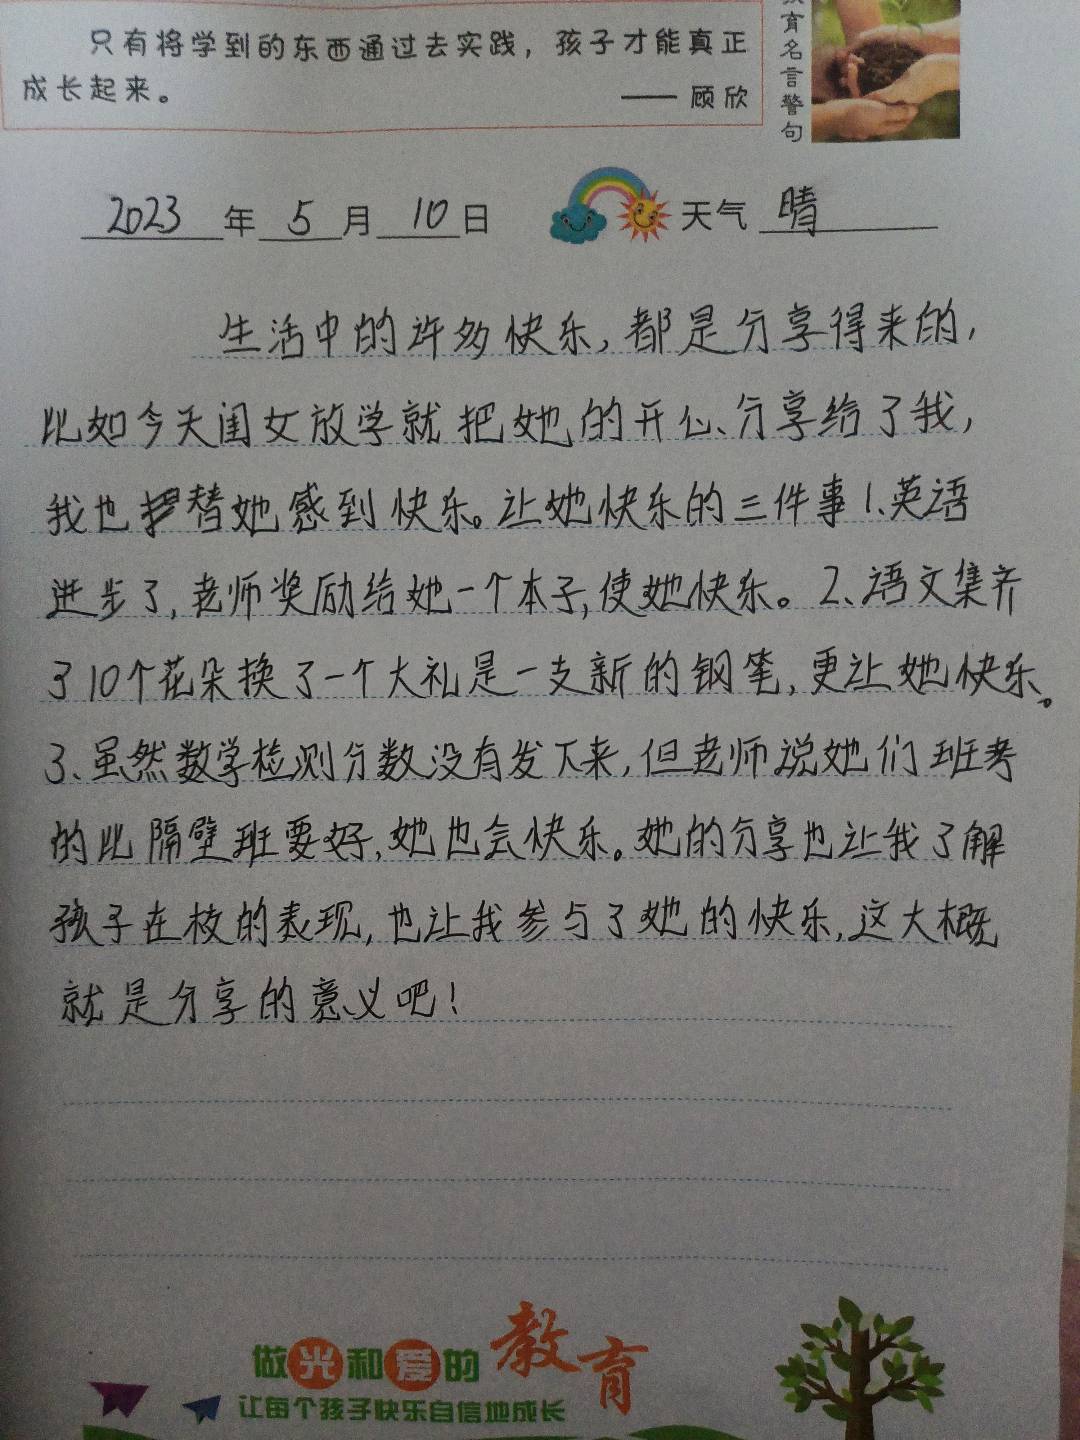 只有将学到的东西通过去实践，孩子才能真正
成长起来。
—— 顾欣
育名言警句
2023年5月10日 天气 晴
生活中的许多快乐，都是分享得来的，
比如今天闺女放学就把她的开心、分享给了我，
我也替她感到快乐。让她快乐的三件事1、英语
进步了，老师奖励给她一个本子，使她快乐。2、语文集齐
了10个花朵换了一个大礼是一支新的钢笔，更让她快乐。
3、虽然数学检测分数没有发下来，但老师说她们班考
的比隔壁班要好，她也会快乐。她的分享也让我了解
孩子在校的表现，也让我参与了她的快乐，这大概
就是分享的意义吧！
做光和爱的教育
让每个孩子快乐自信地成长